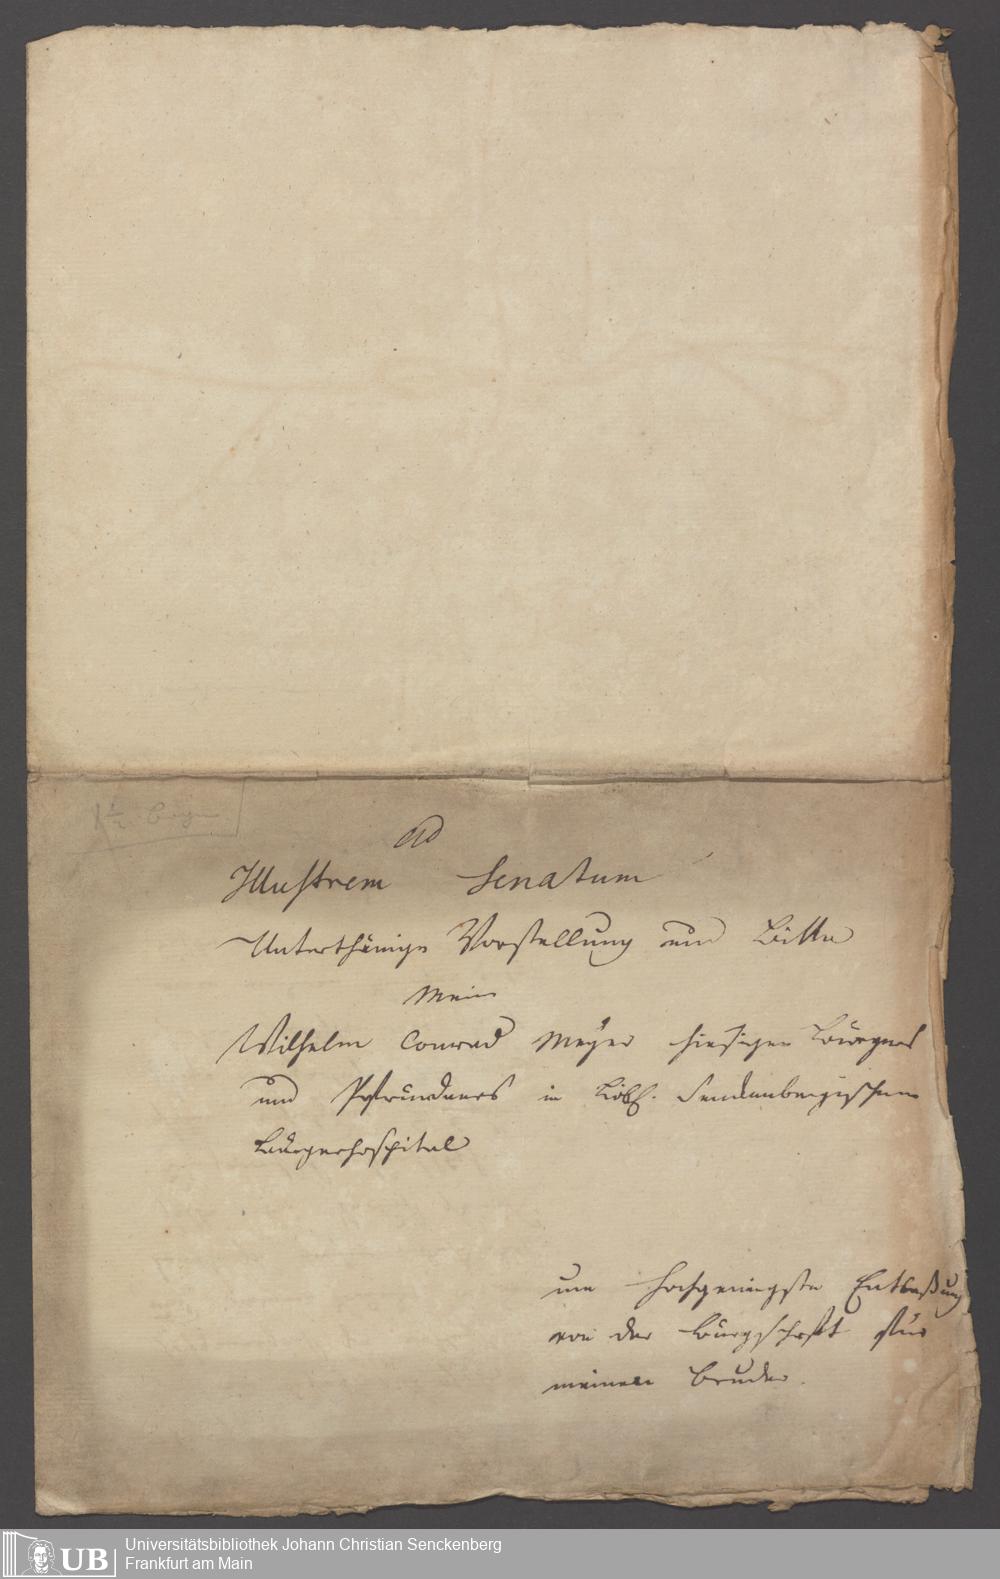 ad
Illustrem Senatum
Unterthänige Vorstellung und Bitte
Mein
Wilhelm Conrad Meyer hiesigen Bürgers
und Pfründners in Löbl. Senckenbergischen
Bürgerhospital
um hochgeneigteste Entlaßung
von der Bürgschaft für
meinen Bruder.
UB Universitätsbibliothek Johann Christian Senckenberg
Frankfurt am Main